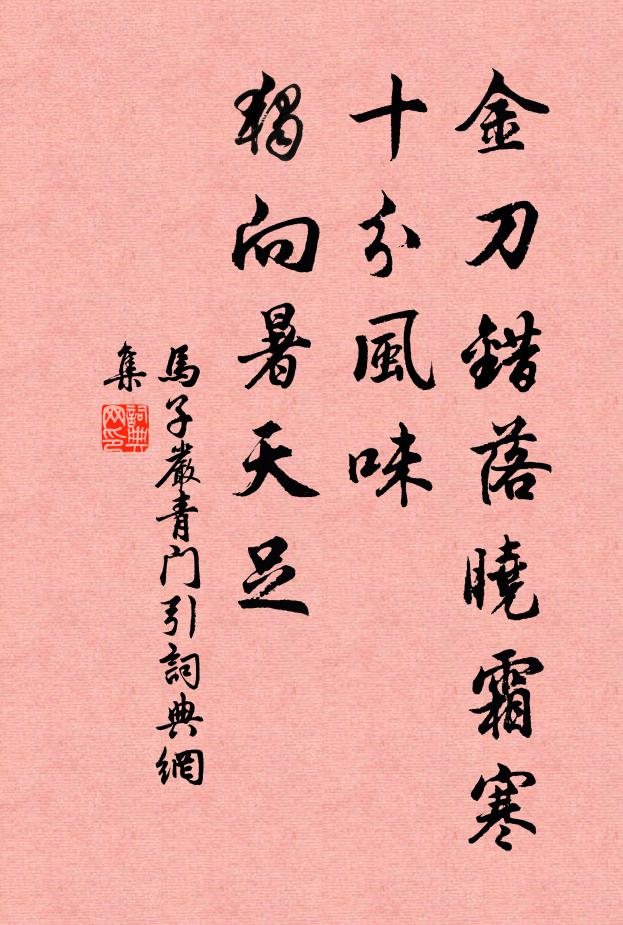 金刀錯落曉霜寒
十分風味
獨向暑天足
馬子嚴青门引詞典網
集
詞典
网印